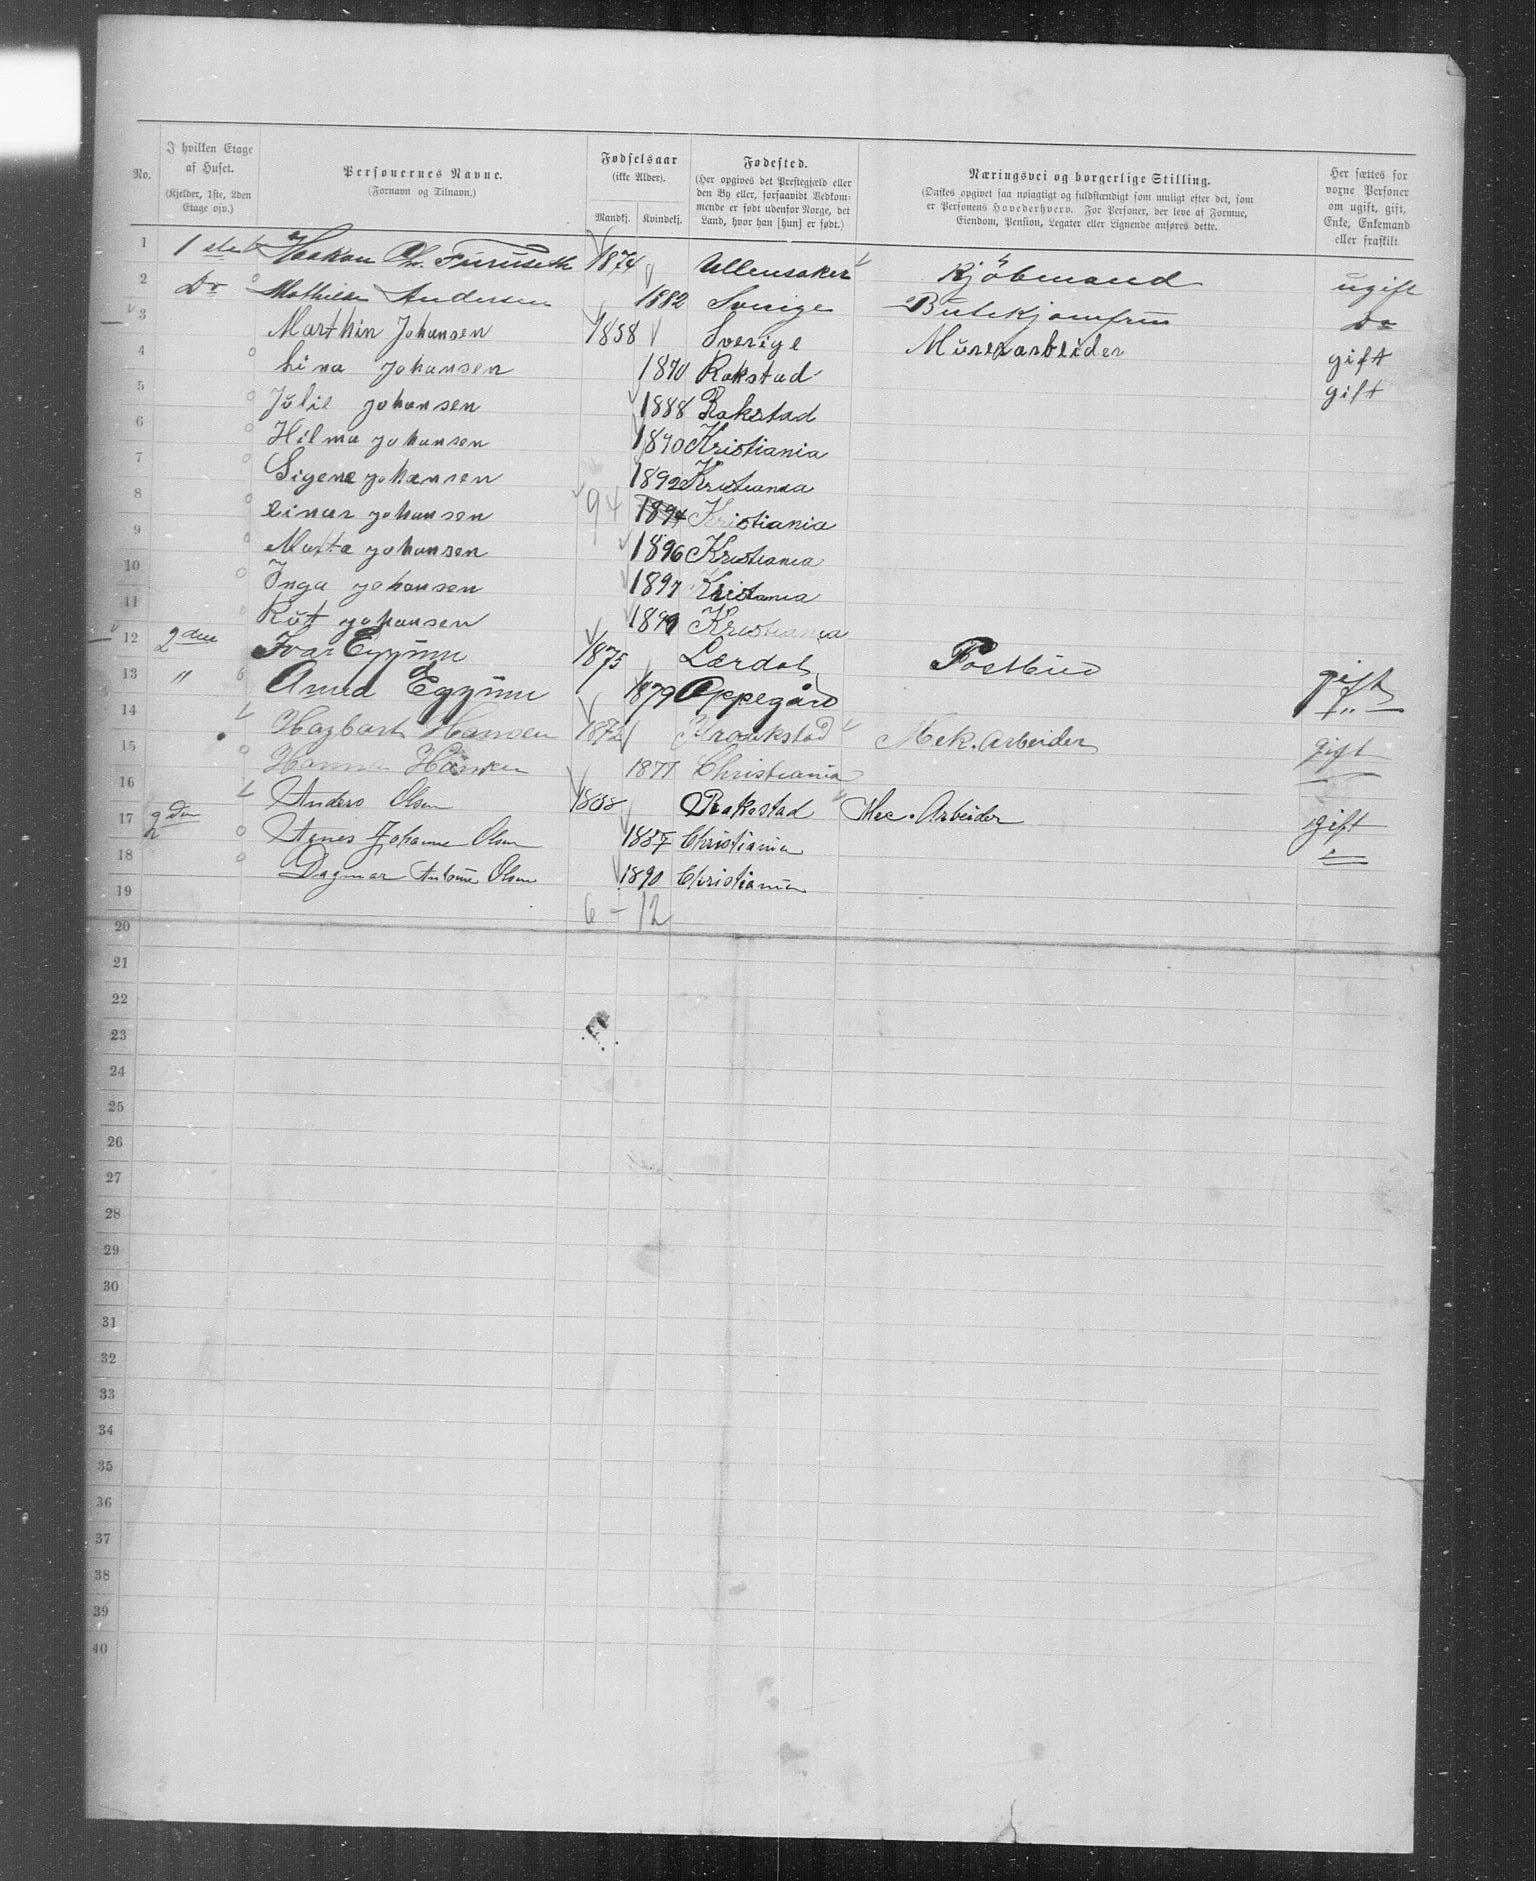 No. | I hvilken Etage af Huset. (Kjelder, 1ste, 2den Etage osv.) | Personernes Navne. (Fornavn og Tilnavn.) | Fødselsaar (ikke Alder). Mandkj. Kvindekj. | Fødested. (Her opgives det Prestegjæld eller den By eller, forsaavidt Vedkommende er født udenfor Norge, det Land, hvor han [hun] er født.) | Næringsvei og borgerlige Stilling. (Ønskes opgivet saa nøiagtigt og fuldstændigt som muligt efter det, som er Personens Hovederhverv. For Personer, der leve af Formue, Eiendom, Pension, Legater eller Lignende anføres dette. | Her sættes for voxne Personer om ugift, gift, Enke, Enkemand eller fraskilt
1 1ste Haakon Chr. Furuseth 1874 Ullensaker Kjöbmand ugift
2 Do Mathilde Andersen 1882 Sverige Butikjomfru Do
3 Marthin Johansen 1858 Sverige Mürerarbeider gift
4 Lina Johansen 1870 Rakstad gift
5 Julie Johansen 1888 Rakstad
6 Hilma Johansen 1890 Kristiania
7 Sigene Johansen 1892 Kristiania
8 Einar Johansen 94 1894 Kristiania
9 Marta Johansen 1896 Kristiania
10 Inga Johansen 1897 Kristiania
11 Rut Johansen 1899 Kristiania
12 2den Ivar Eggum 1875 Lærdal Postbud gift
13 " Anna Eggum 1879 Oppegård "
14 Hagbart Hansen 1872 Kraakstad Mek. Arbeider gift
15 Hanna Hansen 1877 Christiania
16 Anders Olsen 1858 Rakestad Mec. Arbeider gift
17 2den Agnes Johanne Olsen 1887 Christiania
18 Dagmar Antonie Olsen 1890 Christiania
19 6 - 12
20
21
22
23
24
25
26
27
28
29
30
31
32
33
34
35
36
37
38
39
40